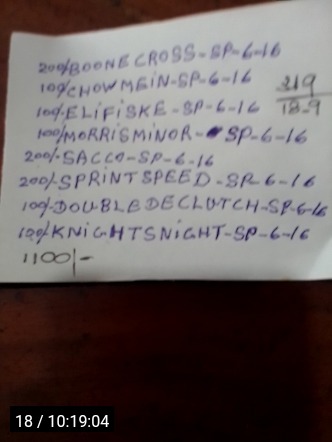 200/-BOONECROSS-SP-6-16
100/-CHOWMEIN-SP-6-16
319
18-9
100/-ELIFISKE-SP-6-16
100/-MORRISMINOR-SP-6-16
200/-SACCO-SP-6-16
200/-SPRINTSPEED-SP-6-16
100/-DOUBLEDECLUTCH-SP-6-16
100/-KNIGHTSNIGHT-SP-6-16
1100/-
18 / 10:19:04